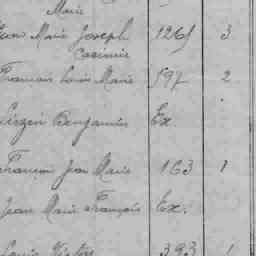 Marie
Jean Marie Joseph 1261 3
Casimir
François Louis Marie 597 2
Benjamin Ex.
François Jean Marie 163 1
Jean Marie François Ex.
Louis Victor 393 1